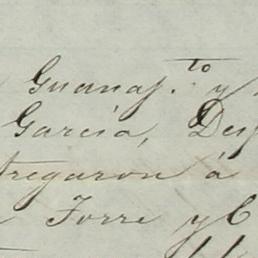 Guanaj.to y
García, Des
tregaron á
Torre y C